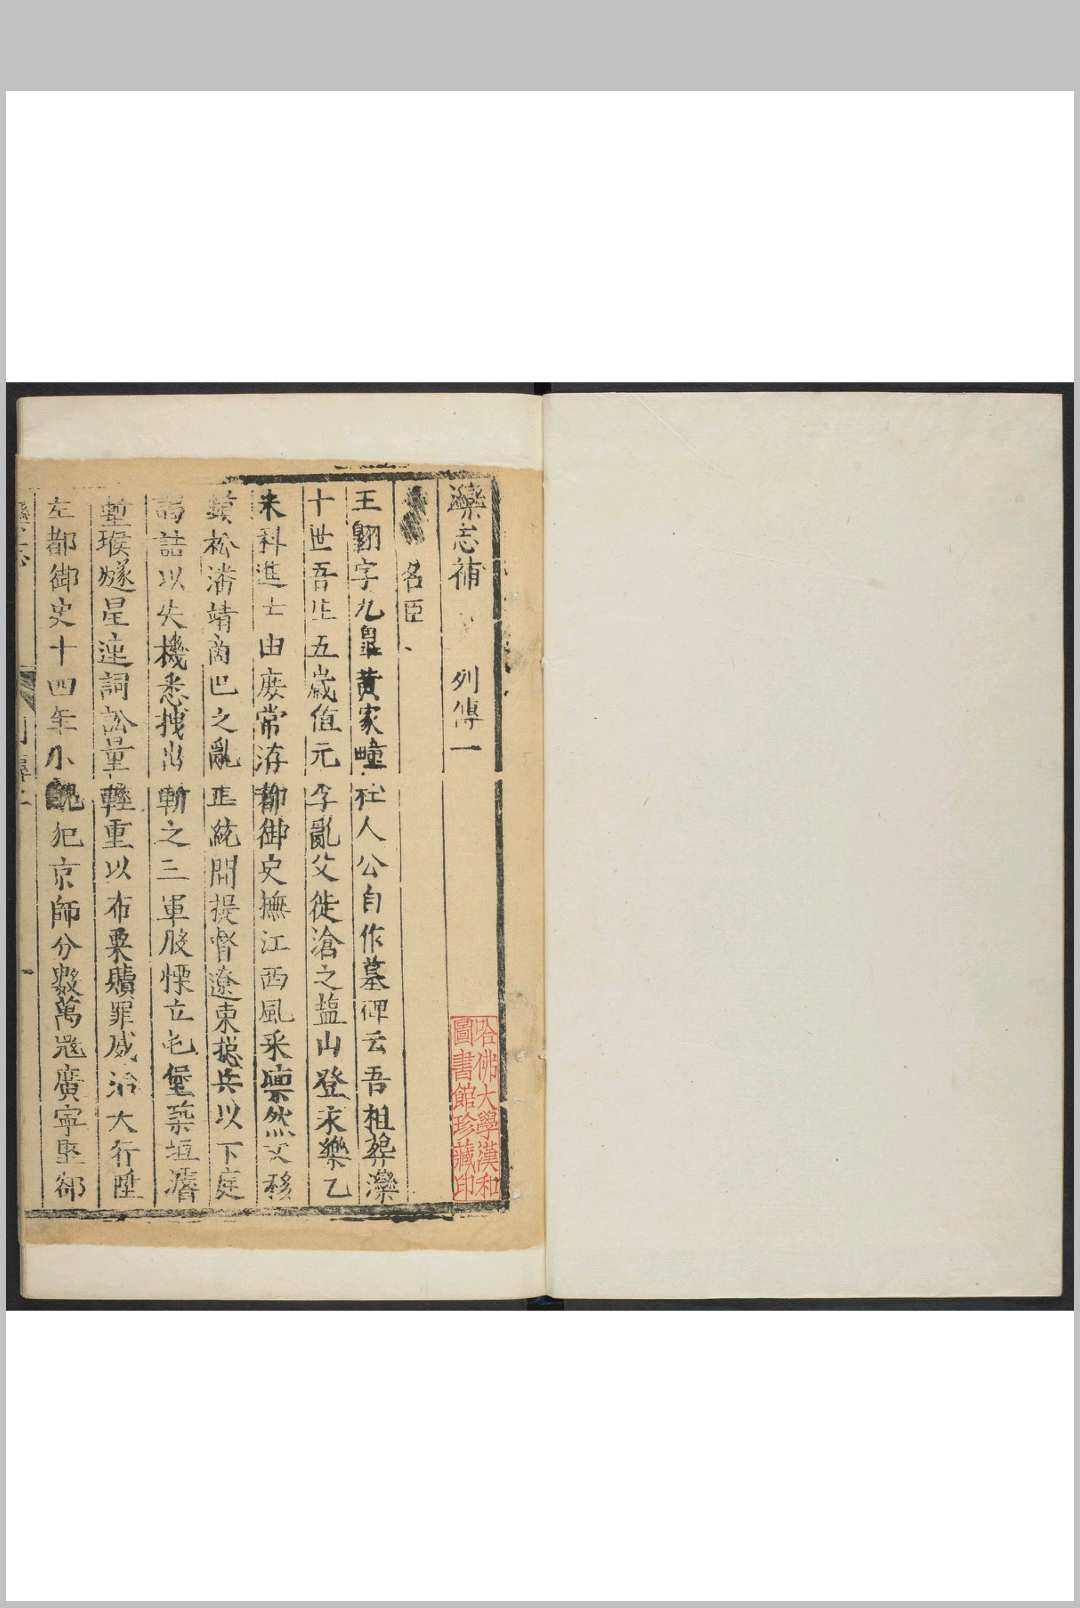 灤志補 列傳一
名臣
王翺字九皐黃家疃社人公自作墓碑云吾祖葬灤
十世吾生五歲值元季亂父徙滄之盐山登永樂乙
未科進士由庶常洊都御史撫江西風采凜然文移
鎮松潘靖商巴之亂正統間提督遼東摠兵以下庭
謁詰以失機悉拽出斬之三軍股慄立屯堡築垣濬
塹堠燧星連詞訟量輕重以布粟贖罪威治大行陞
左都御史十四年小醜犯京師分數萬寇廣寧堅卻
灤志
列傳一
一
哈佛大學漢和
圖書館珍藏印